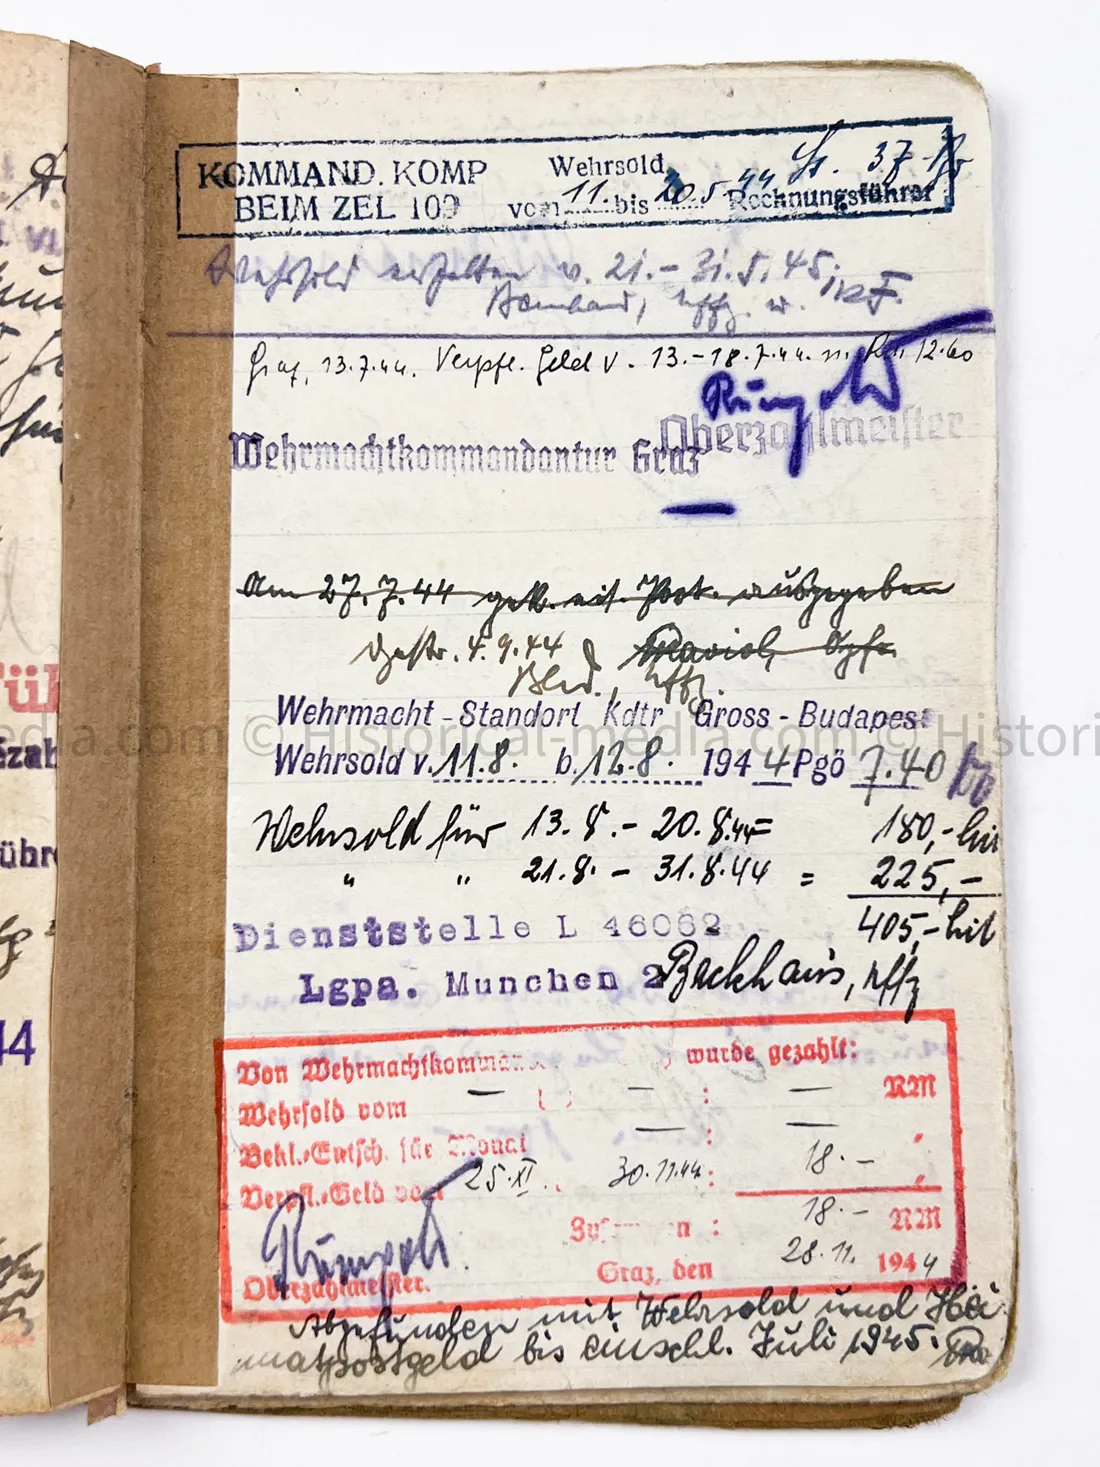 KOMMAND. KOMP
BEIM ZEL 109
Wehrsold
vom 11. bis 20.5.44 37.
Rechnungsführer
Wehrsold erhalten v. 21.- 31.5.45.
Graz, 13.7.44. Verpfl. Geld v. 13.-18.7.44 m. 12.60
Rümpold
Oberzahlmeister
Wehrmachtkommandantur Graz
Am 27.7.44 ausgegeben
Gestr. 4.9.44
Uffz.
Wehrmacht-Standort Kdtr Gross-Budapest
Wehrsold v. 11.8. b. 12.8. 1944 Pgö 7.40
Wehrsold für 13.8.- 20.8.44= 180,-
" " 21.8.- 31.8.44 = 225,-
405,-
Dienststelle L 46062
Lgpa. Munchen 2
Backhaus, Uffz
Von Wehrmachtkomman wurde gezahlt:
Wehrsold vom — — : — RM
Bekl.-Entsch. für Monat — : — "
Verpfl.-Geld vom 25.XI. 30.11.44: 18.- "
Zusammen : 18.- RM
Graz, den 28.11. 1944
Rümpold
Oberzahlmeister.
Abgefunden mit Wehrsold und Hei-
matpostgeld bis einschl. Juli 1945.
ezah
ühr
44
edia.com © Historical-media.com © Histori